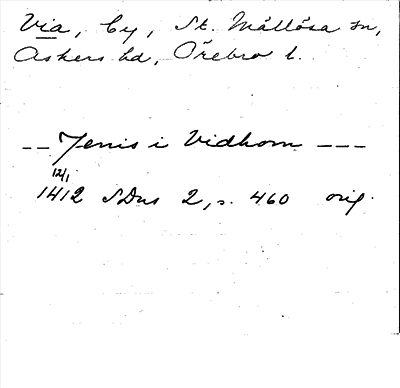 Via, by, St. Mällösa sn,
Askers hd, Örebro l.
-- Jenis i Vidhom ---
12/1
1412 SDns 2, s. 460 orig.